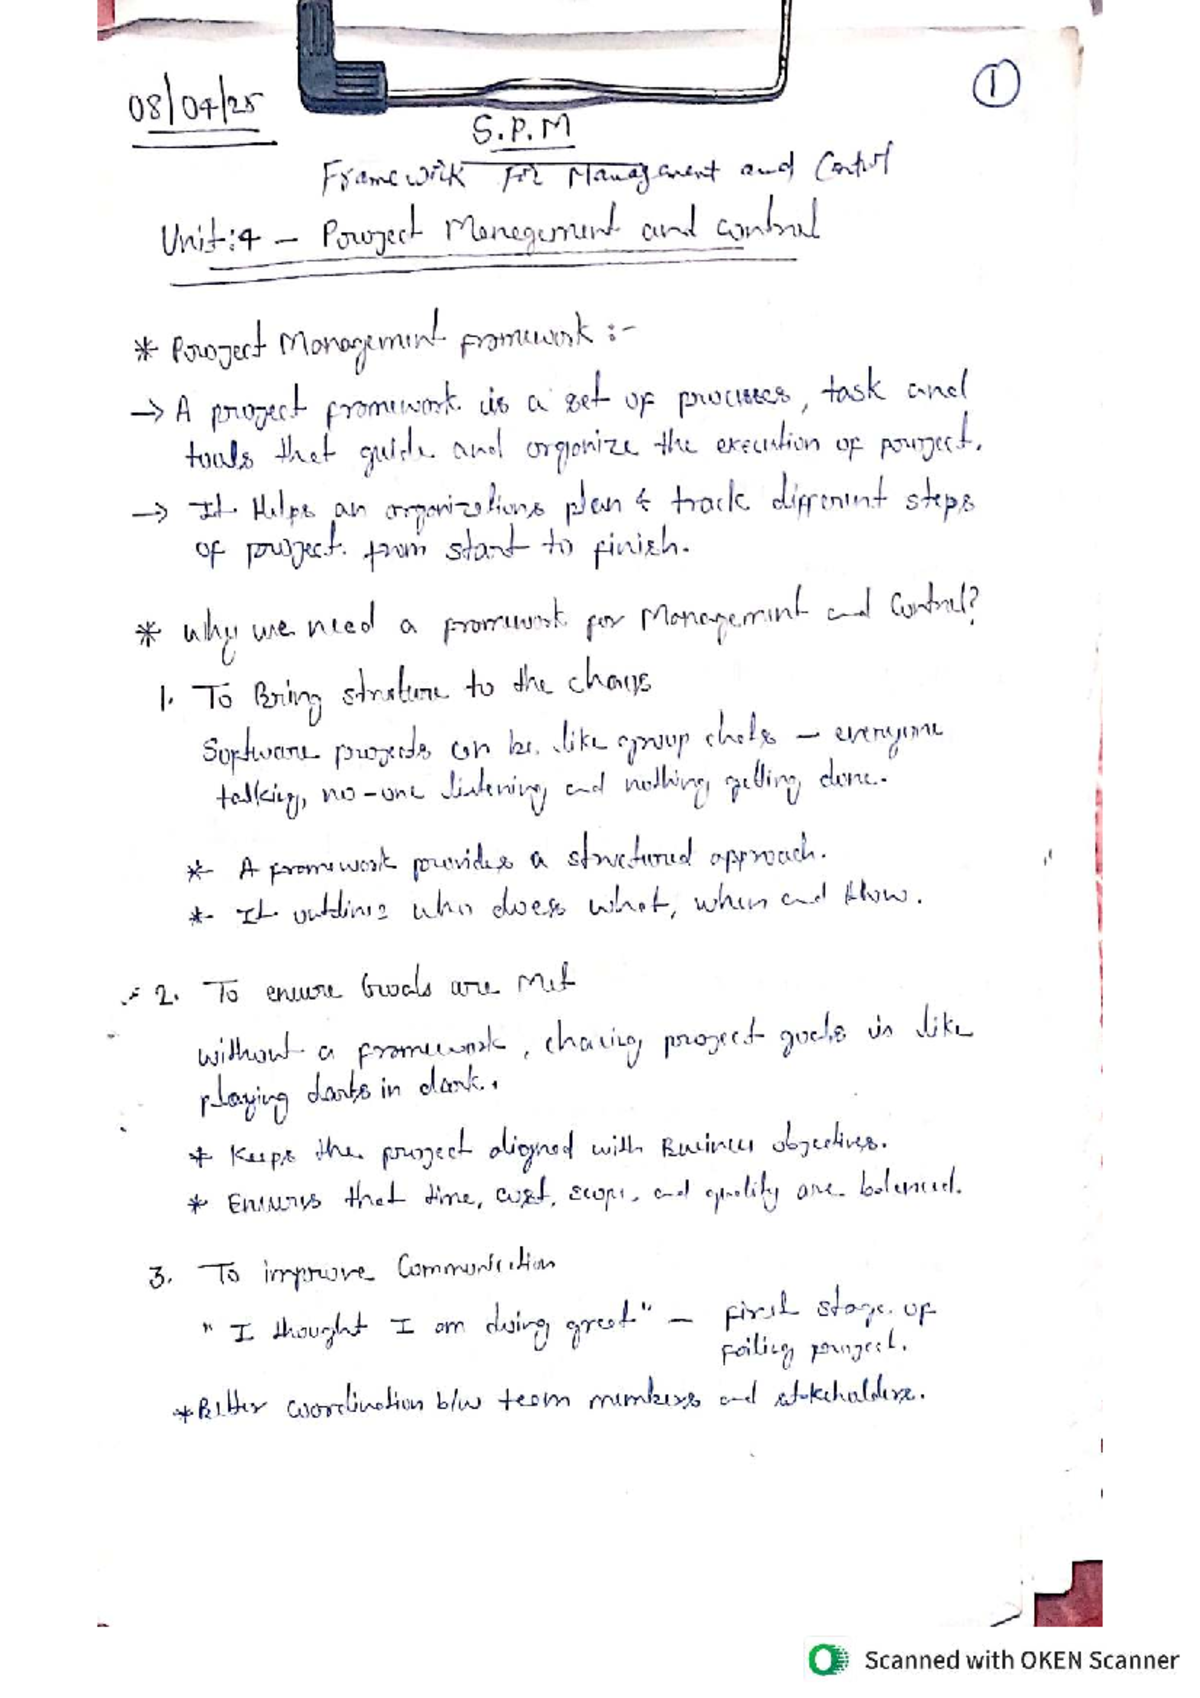 08/04/25
1
S.P.M
Framework For Management and Control
Unit:4 - Project Management and control
* Project Management framework :-
→ A project framework is a set of processes, task and
tools that guide and organize the execution of project.
→ It Helps an organizations plan & track different steps
of project from start to finish.
* Why we need a framework for Management and Control?
1. To Bring struture to the chaos
Software projects can be like group chats - everyone
talking, no-one listening and nothing getting done.
* A framework provides a structured approach.
* It outlines who does what, when and How.
2. To ensure Goals are Met
without a framework, chasing project goals is like
playing darts in dark.
* Keeps the project aligned with Business objectives.
* Ensures that time, cost, scope, and quality are balanced.
3. To improve Communication
"I thought I am doing great" - first stage of
failing project.
* Better coordination b/w team members and stakeholders.
Scanned with OKEN Scanner